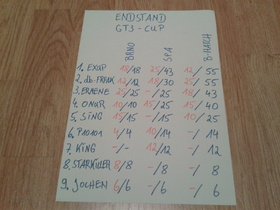 ENDSTAND
GT3-CUP
BRNO SPA B-HATCH
1. EXUP 18/18 25/43 12/55
2. db-FREAK 12/12 18/30 25/55
3. 25/25 -/25 18/43
4. ONUR 10/10 15/25 15/40
5. SING 15/15 -/15 10/25
6. P10101 4/4 10/14 -/14
7. KING -/- 12/12 -/12
8. STARKILLER 8/8 -/8 -/8
9. JOCHEN 6/6 -/6 -/6